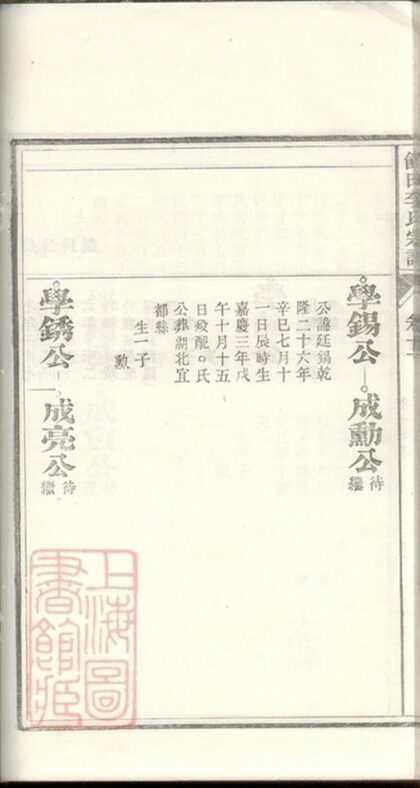 李氏宗譜
學錫公
成勳公
待繼
公諱廷錫乾
隆二十六年
辛巳七月十
一日辰時生
嘉慶三年戊
午十月十五
日歿配〇氏
公葬湖北宜
都縣
生一子
勲
學銹公
成亮公
待繼
上海圖
書館藏